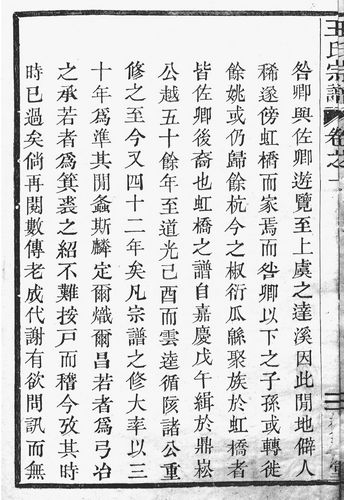 王氏宗譜 卷之一
咎卿與佐卿遊覽至上虞之達溪因此閒地僻人
稀遂傍虹橋而家焉而咎卿以下之子孫或轉徙
餘姚或仍歸餘杭今之椒衍瓜緜聚族於虹橋者
皆佐卿後裔也虹橋之譜自嘉慶戊午緝於鼎崧
公越五十餘年至道光己酉而雲逵循陔諸公重
修之至今又四十二年矣凡宗譜之修大率以三
十年爲準其閒螽斯麟定爾熾爾昌若者爲弓冶
之承若者爲箕裘之紹不難按戶而稽今攷其時
時已過矣倘再閱數傳老成代謝有欲問訊而無